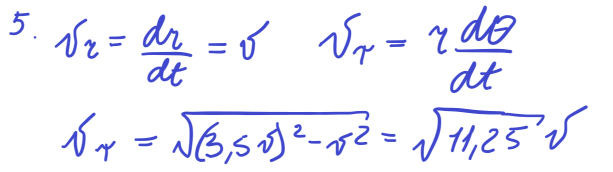 5. v_r = dr/dt = v   v_τ = r dθ/dt
v_τ = √((3,5v)² - v²) = √11,25 v